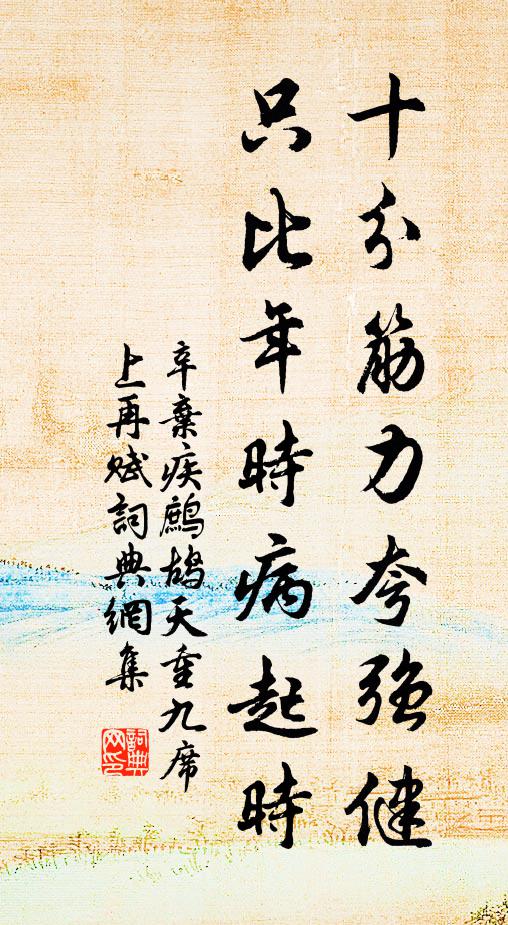 十分筋力夸強健
只比年時病起時
辛棄疾鷓鴣天重九席
上再賦詞典網集
詞典
网印